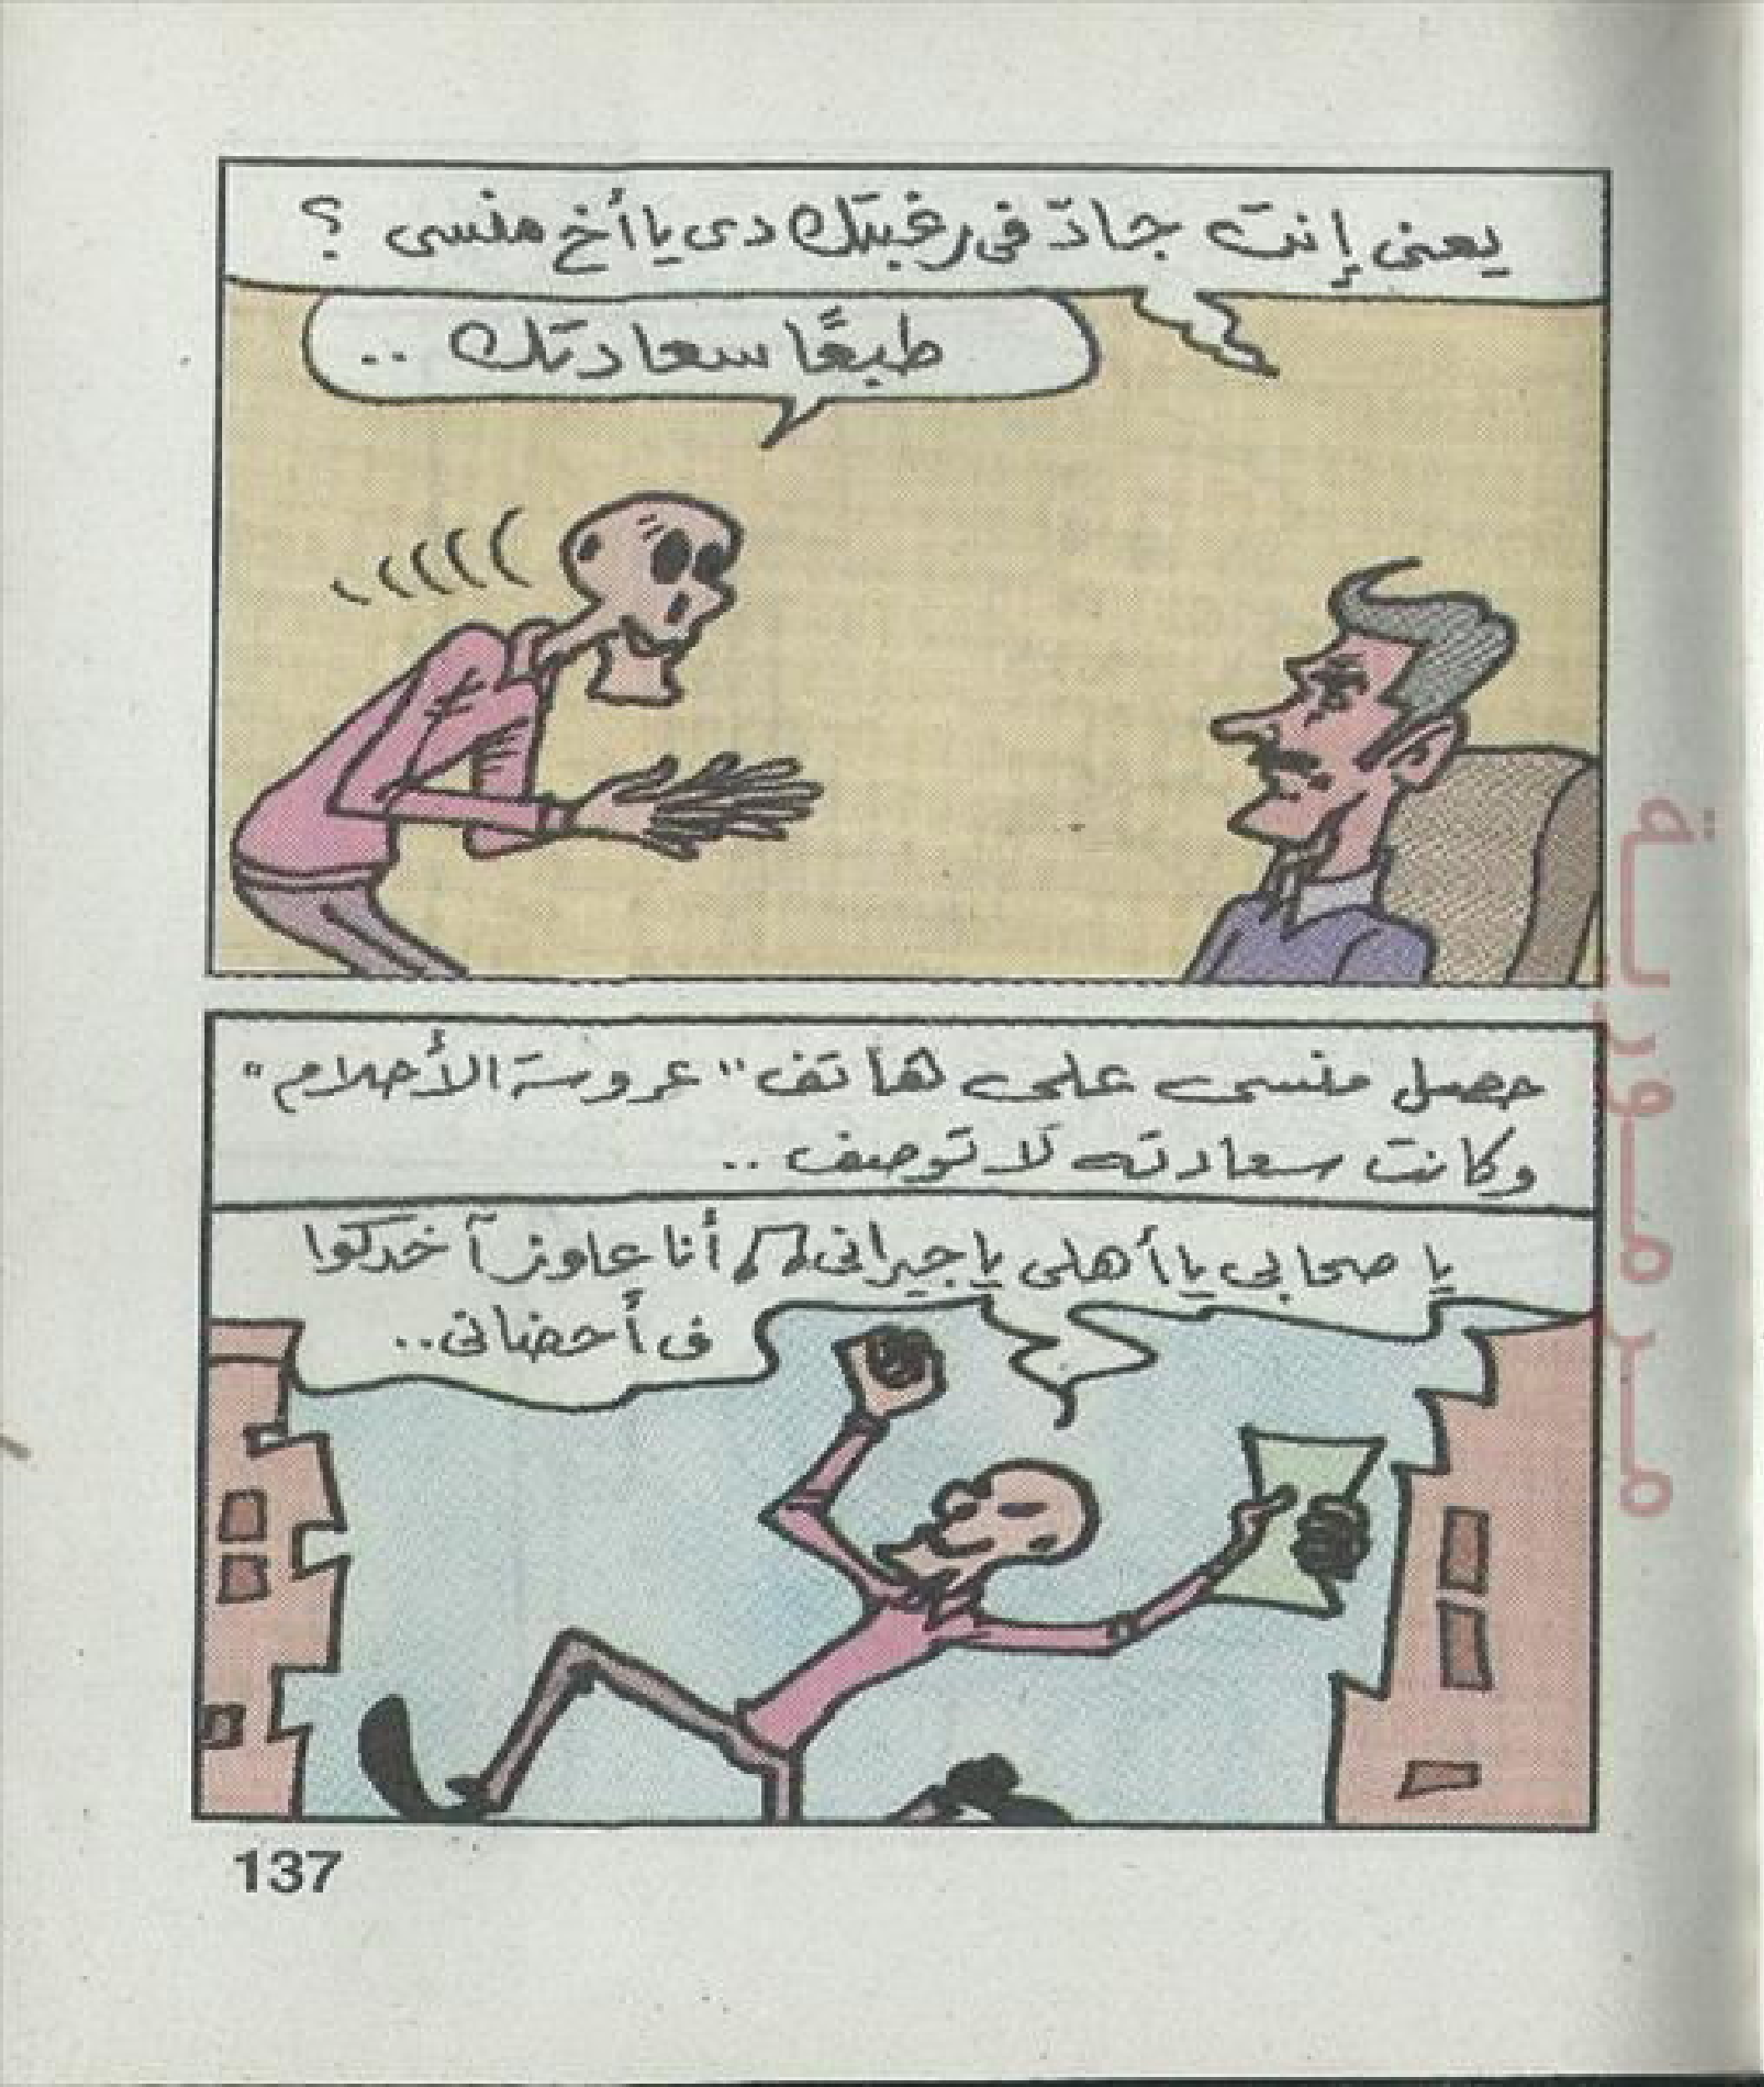 يعنى إنت جادّ فى رغبتك دى يا أخ منسى ؟
طبعًا سعادتك ..
حصل منسى على هاتف "عروسة الأحلام"
وكانت سعادته لا توصف ..
يا صحابى يا أهلى يا جيرانى أنا عاوز آخدكوا
فى أحضانى..
137
مرمورية